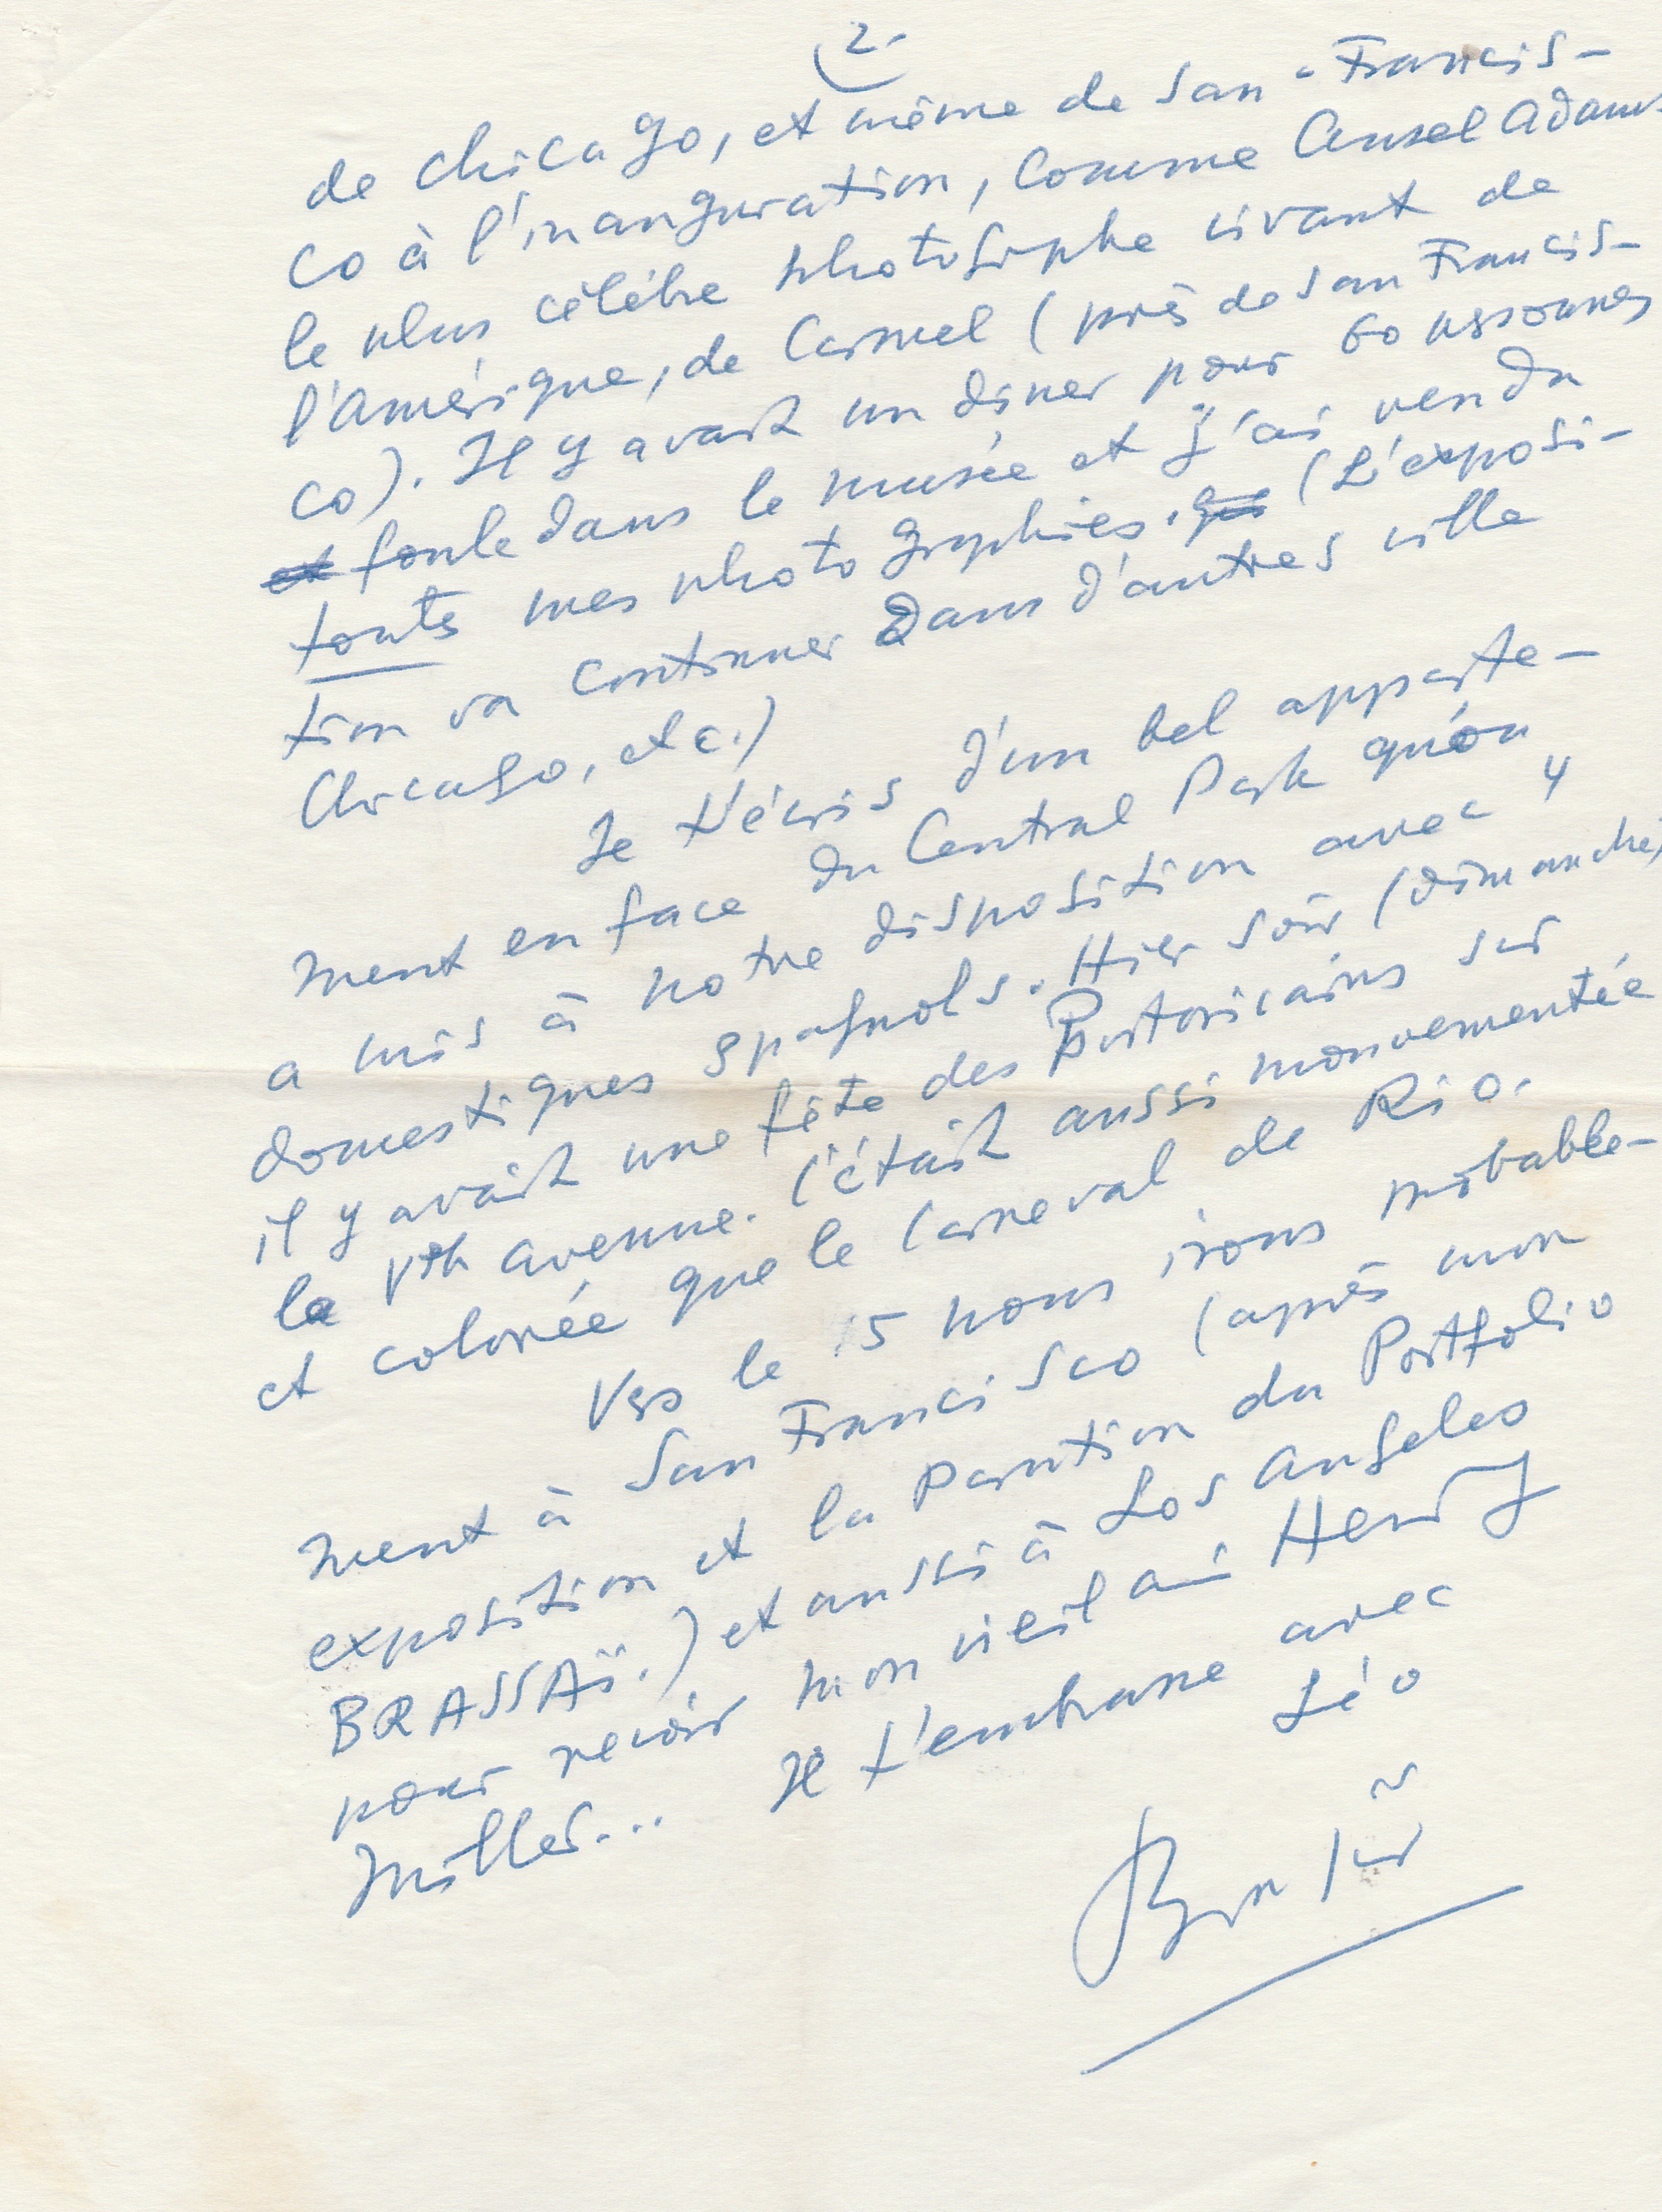 2-
de Chicago, et même de San-Francis-
co à l'inanguration, Comme Ansel Adams
le plus célèbre photographe vivant de
l'Amérique, de Carmel (près de San Francis-
co). Il y avait un dîner pour 60 personnes
et foule dans le musée et j'ai vendu
touts mes photographies. qui (L'exposi-
tion va continuer dans d'autres ville
Chicago, etc.)
Je t'écris d'un bel apparte-
ment en face du Central Park qu'on
a mis à notre disposition avec 4
domestiques spagnols. Hier soir (dimanche)
il y avait une fête des Portoricains sur
la Vth avenue. C'était aussi mouvementée
et colorée que le Carneval de Rio.
Vers le 15 nous irons probable-
ment à San Francisco (après mon
exposition et la parution du Portfolio
BRASSAÏ.) et aussi à Los Angeles
pour revoir mon vieil ami Henry
Miller... Je t'embrasse avec
Léo